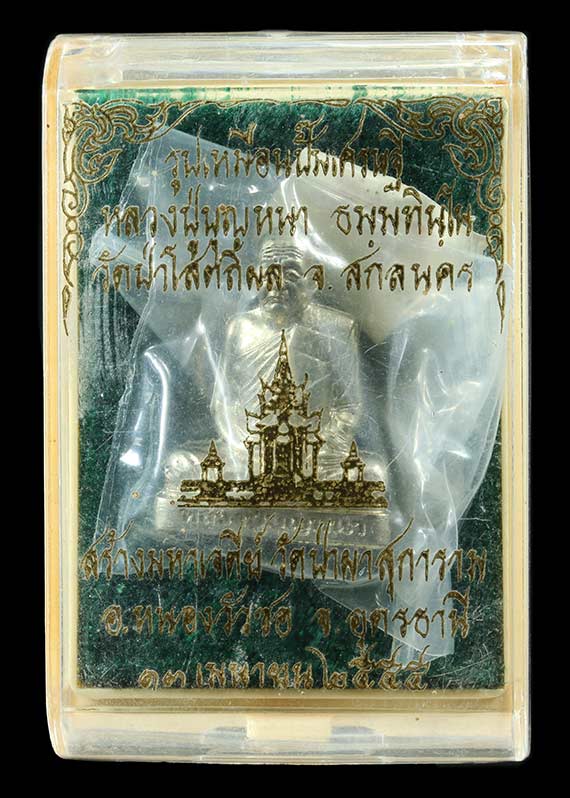 รูปเหมือนปั๊มเศรษฐี
หลวงปู่บุญหนา ธมฺมทินฺโน
วัดป่าโสตถิผล จ.สกลนคร
สร้างมหาเจดีย์ วัดป่าผาสุการาม
อ.หนองวัวซอ จ อุดรธานี
๑๓ เมษายน ๒๕๕๕